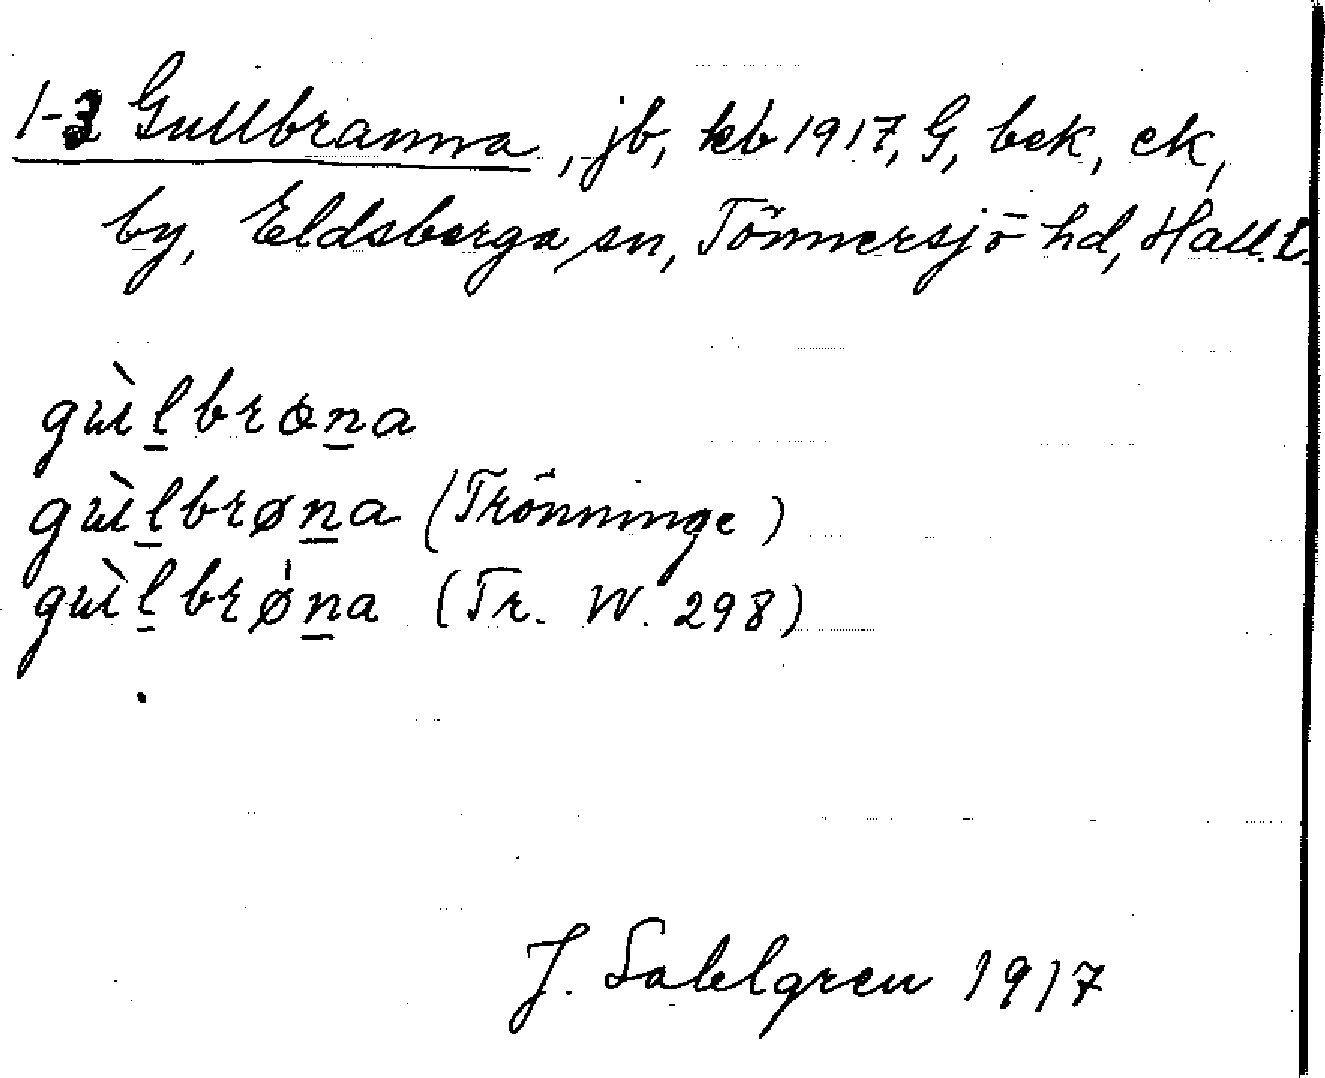 1-3 Gullbranna, jb, kb 1917, G, bek, ek,
by, Eldsberga sn, Tönnersjö hd, Hall. l.
gùlbrɑna
gùlbrøna (Trönninge)
gùlbrøna (Tr. W. 298)
J. Sahlgren 1917